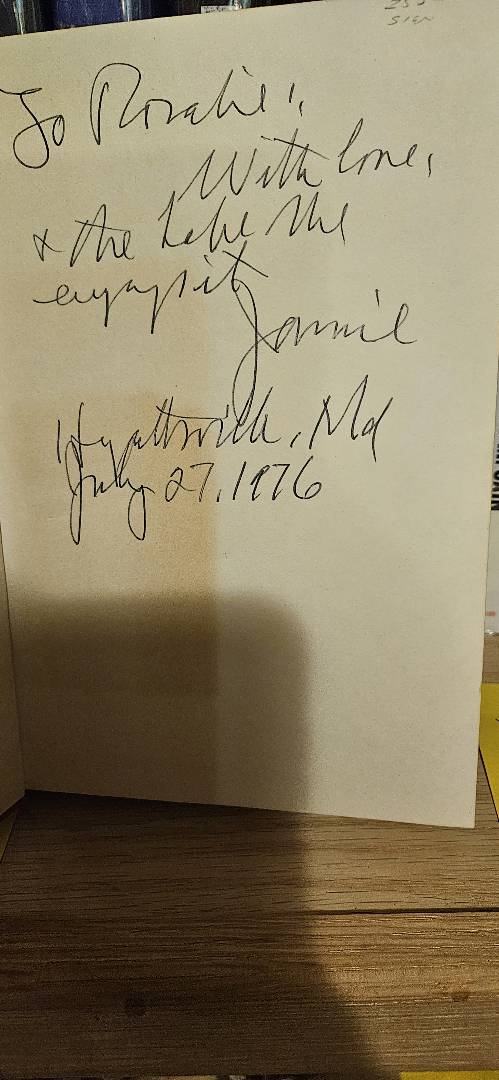 SIGN
To Rosalie!,
With love,
& the hope she
enjoys it
Jamie
Hyattsville, Md
July 27, 1976